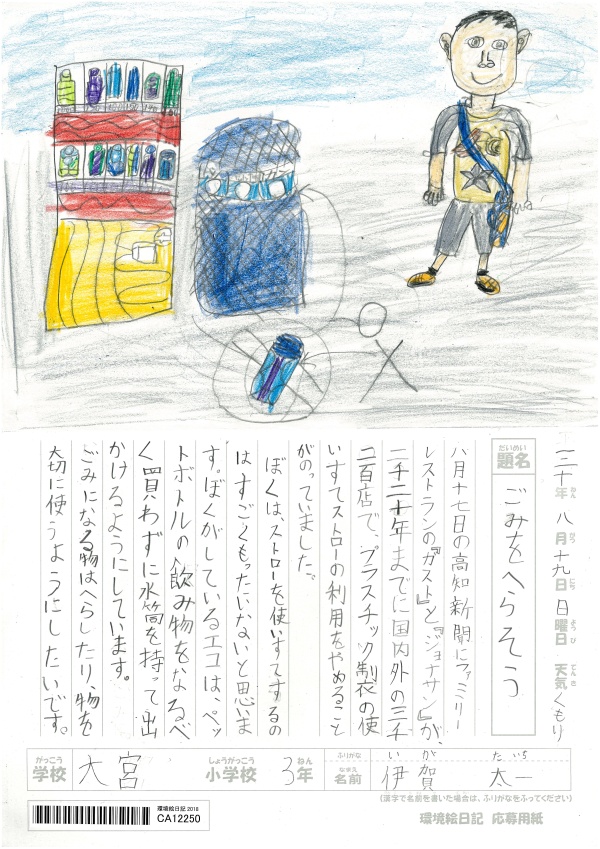 三十年 八月十九日 日曜日 天気 くもり
年ねん 月がつ 日にち 曜日ようび 天気てんき
だいめい
題名
ごみをへらそう
八月十七日の高知新聞にファミリー
レストランの『ガスト』と『ジョナサン』が、
二千二十年までに国内外の三千
二百店で、プラスチック製の使
いすてストローの利用をやめること
がのっていました。
ぼくは、ストローを使いすてするの
はすごくもったいないと思いま
す。ぼくがしているエコは、ペッ
トボトルの飲み物をなるべ
く買わずに水筒を持って出
かけるようにしています。
ごみになる物はへらしたり、物を
大切に使うようにしたいです。
がっこう
学校
大宮
しょうがっこう
小学校
3年
ねん
ふりがな
なまえ
名前
いが たいち
伊賀 太一
(漢字で名前を書いた場合は、ふりがなをふってください)
環境絵日記 2018
CA12250
環境絵日記 応募用紙